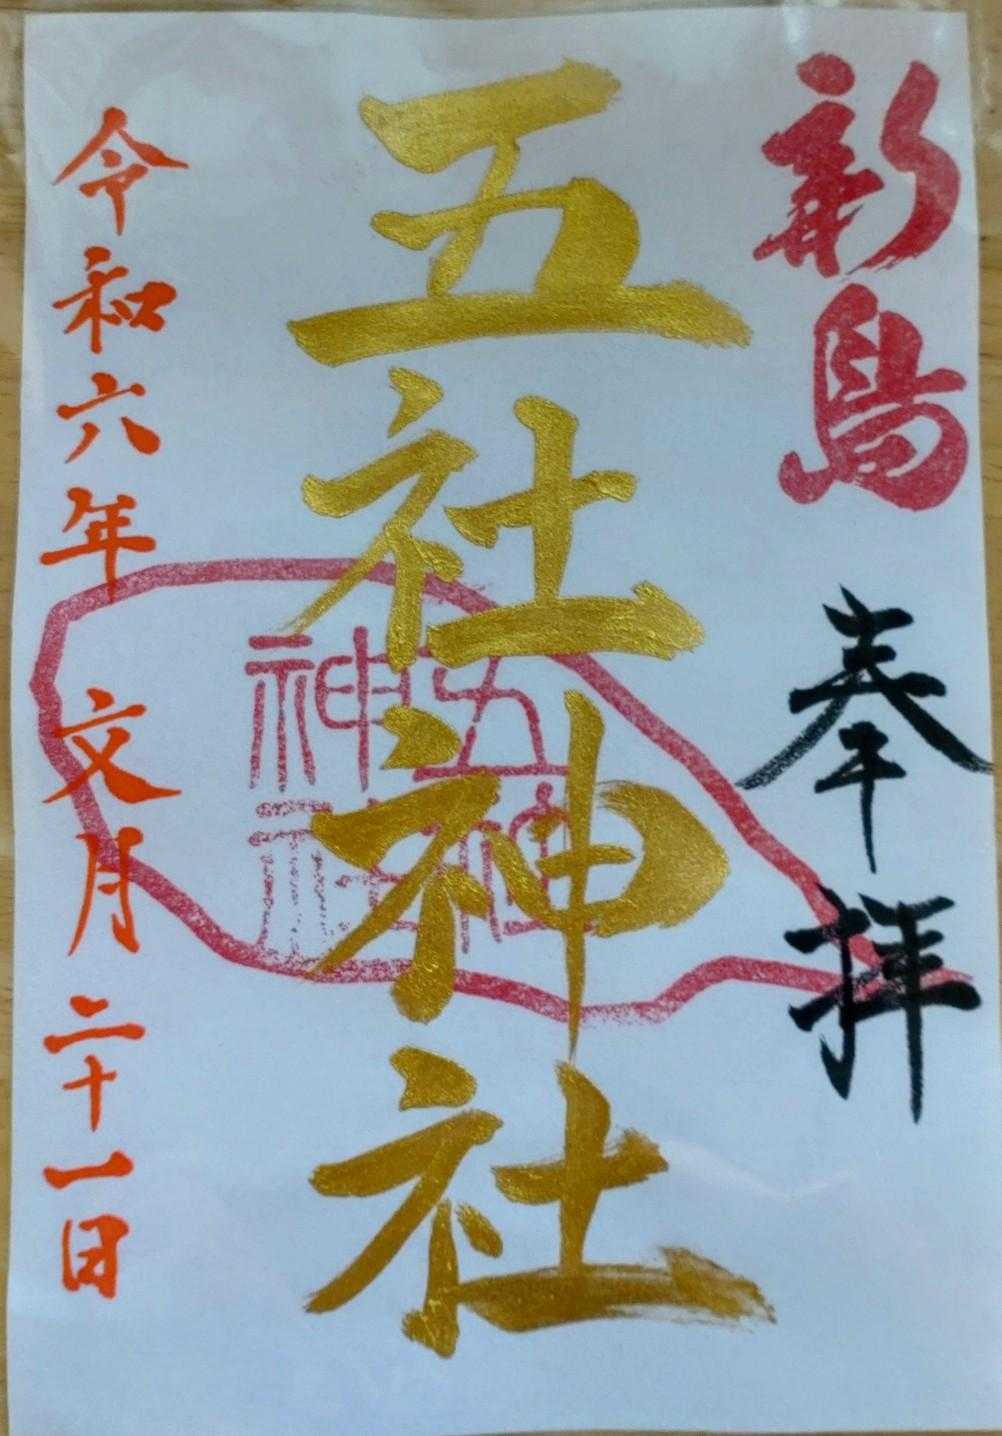 新島
奉拝
五社神社
五社
神社
令和六年 文月 二十一日